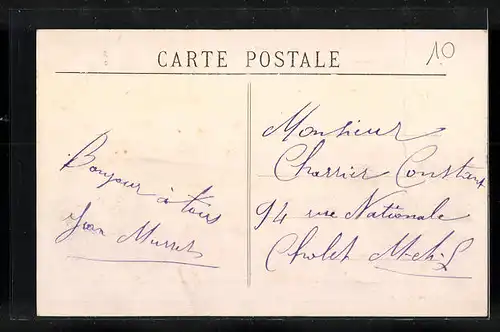 CARTE POSTALE
10
Bonjour à tous
Jean
Monsieur
Charrier Constant
94 rue Nationale
Cholet M-et-L